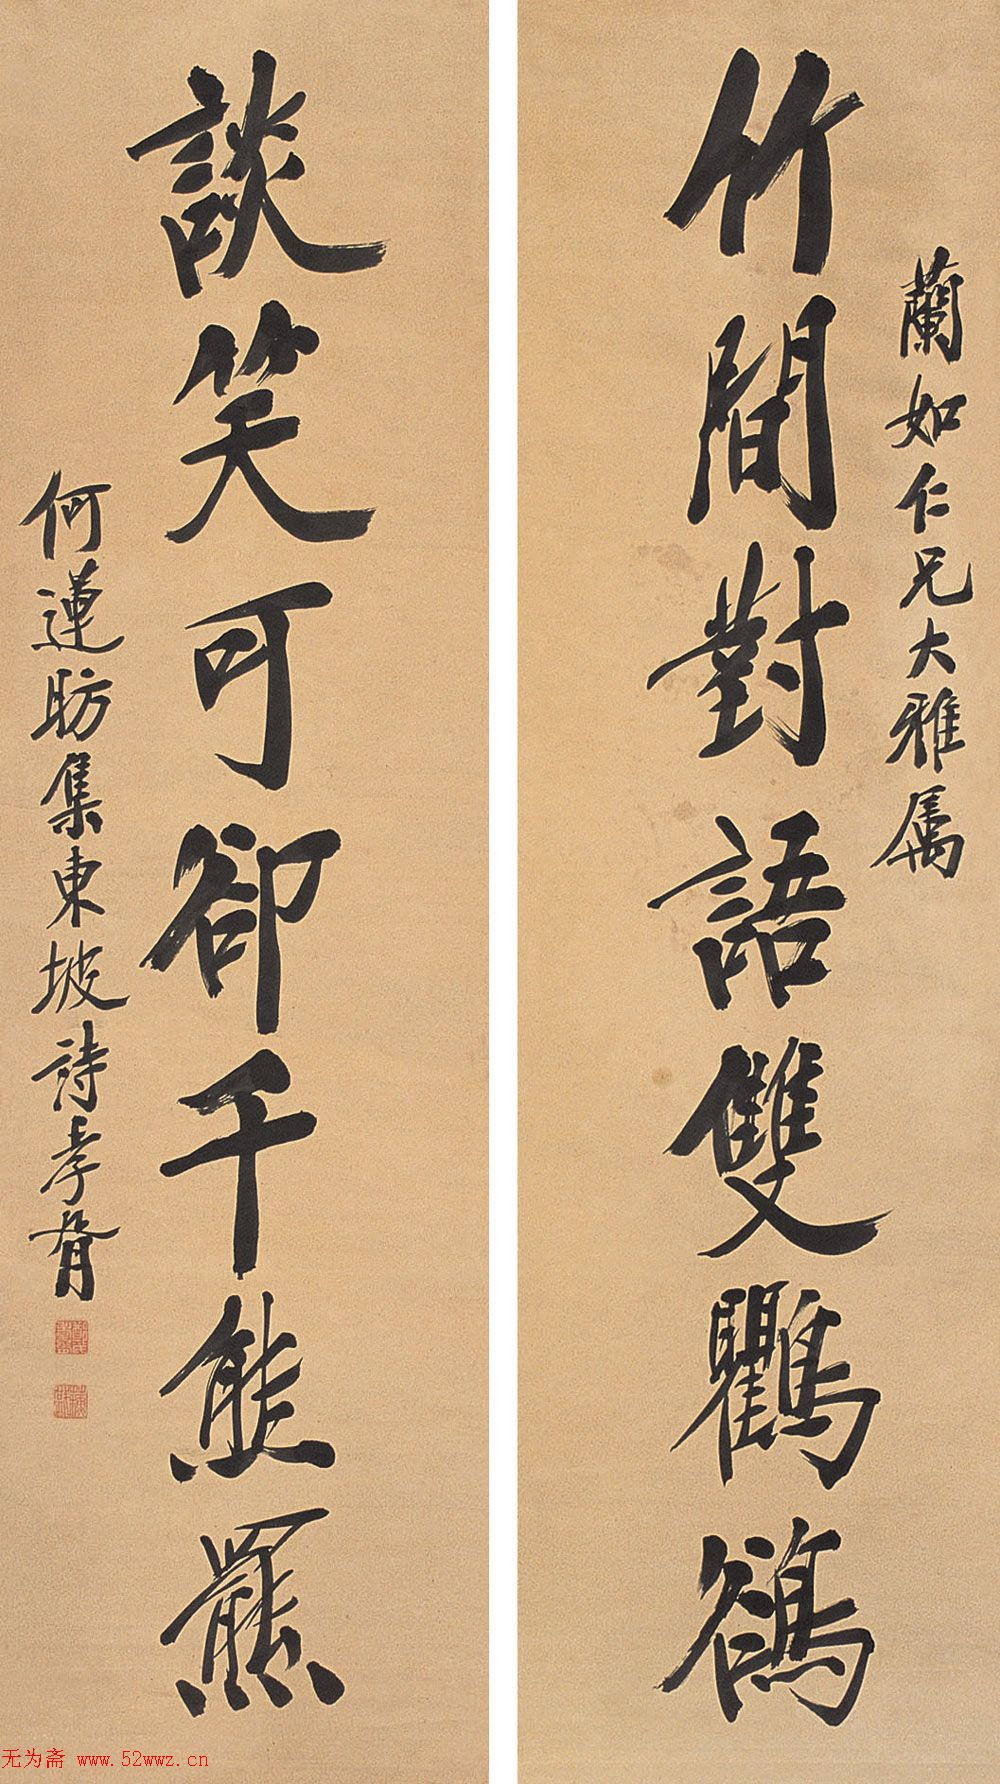 蘭如仁兄大雅屬
竹間對語雙鸜鵒
談笑可卻千熊羆
何蓮昉集東坡詩孝胥
无为斋 www.52wwz.cn